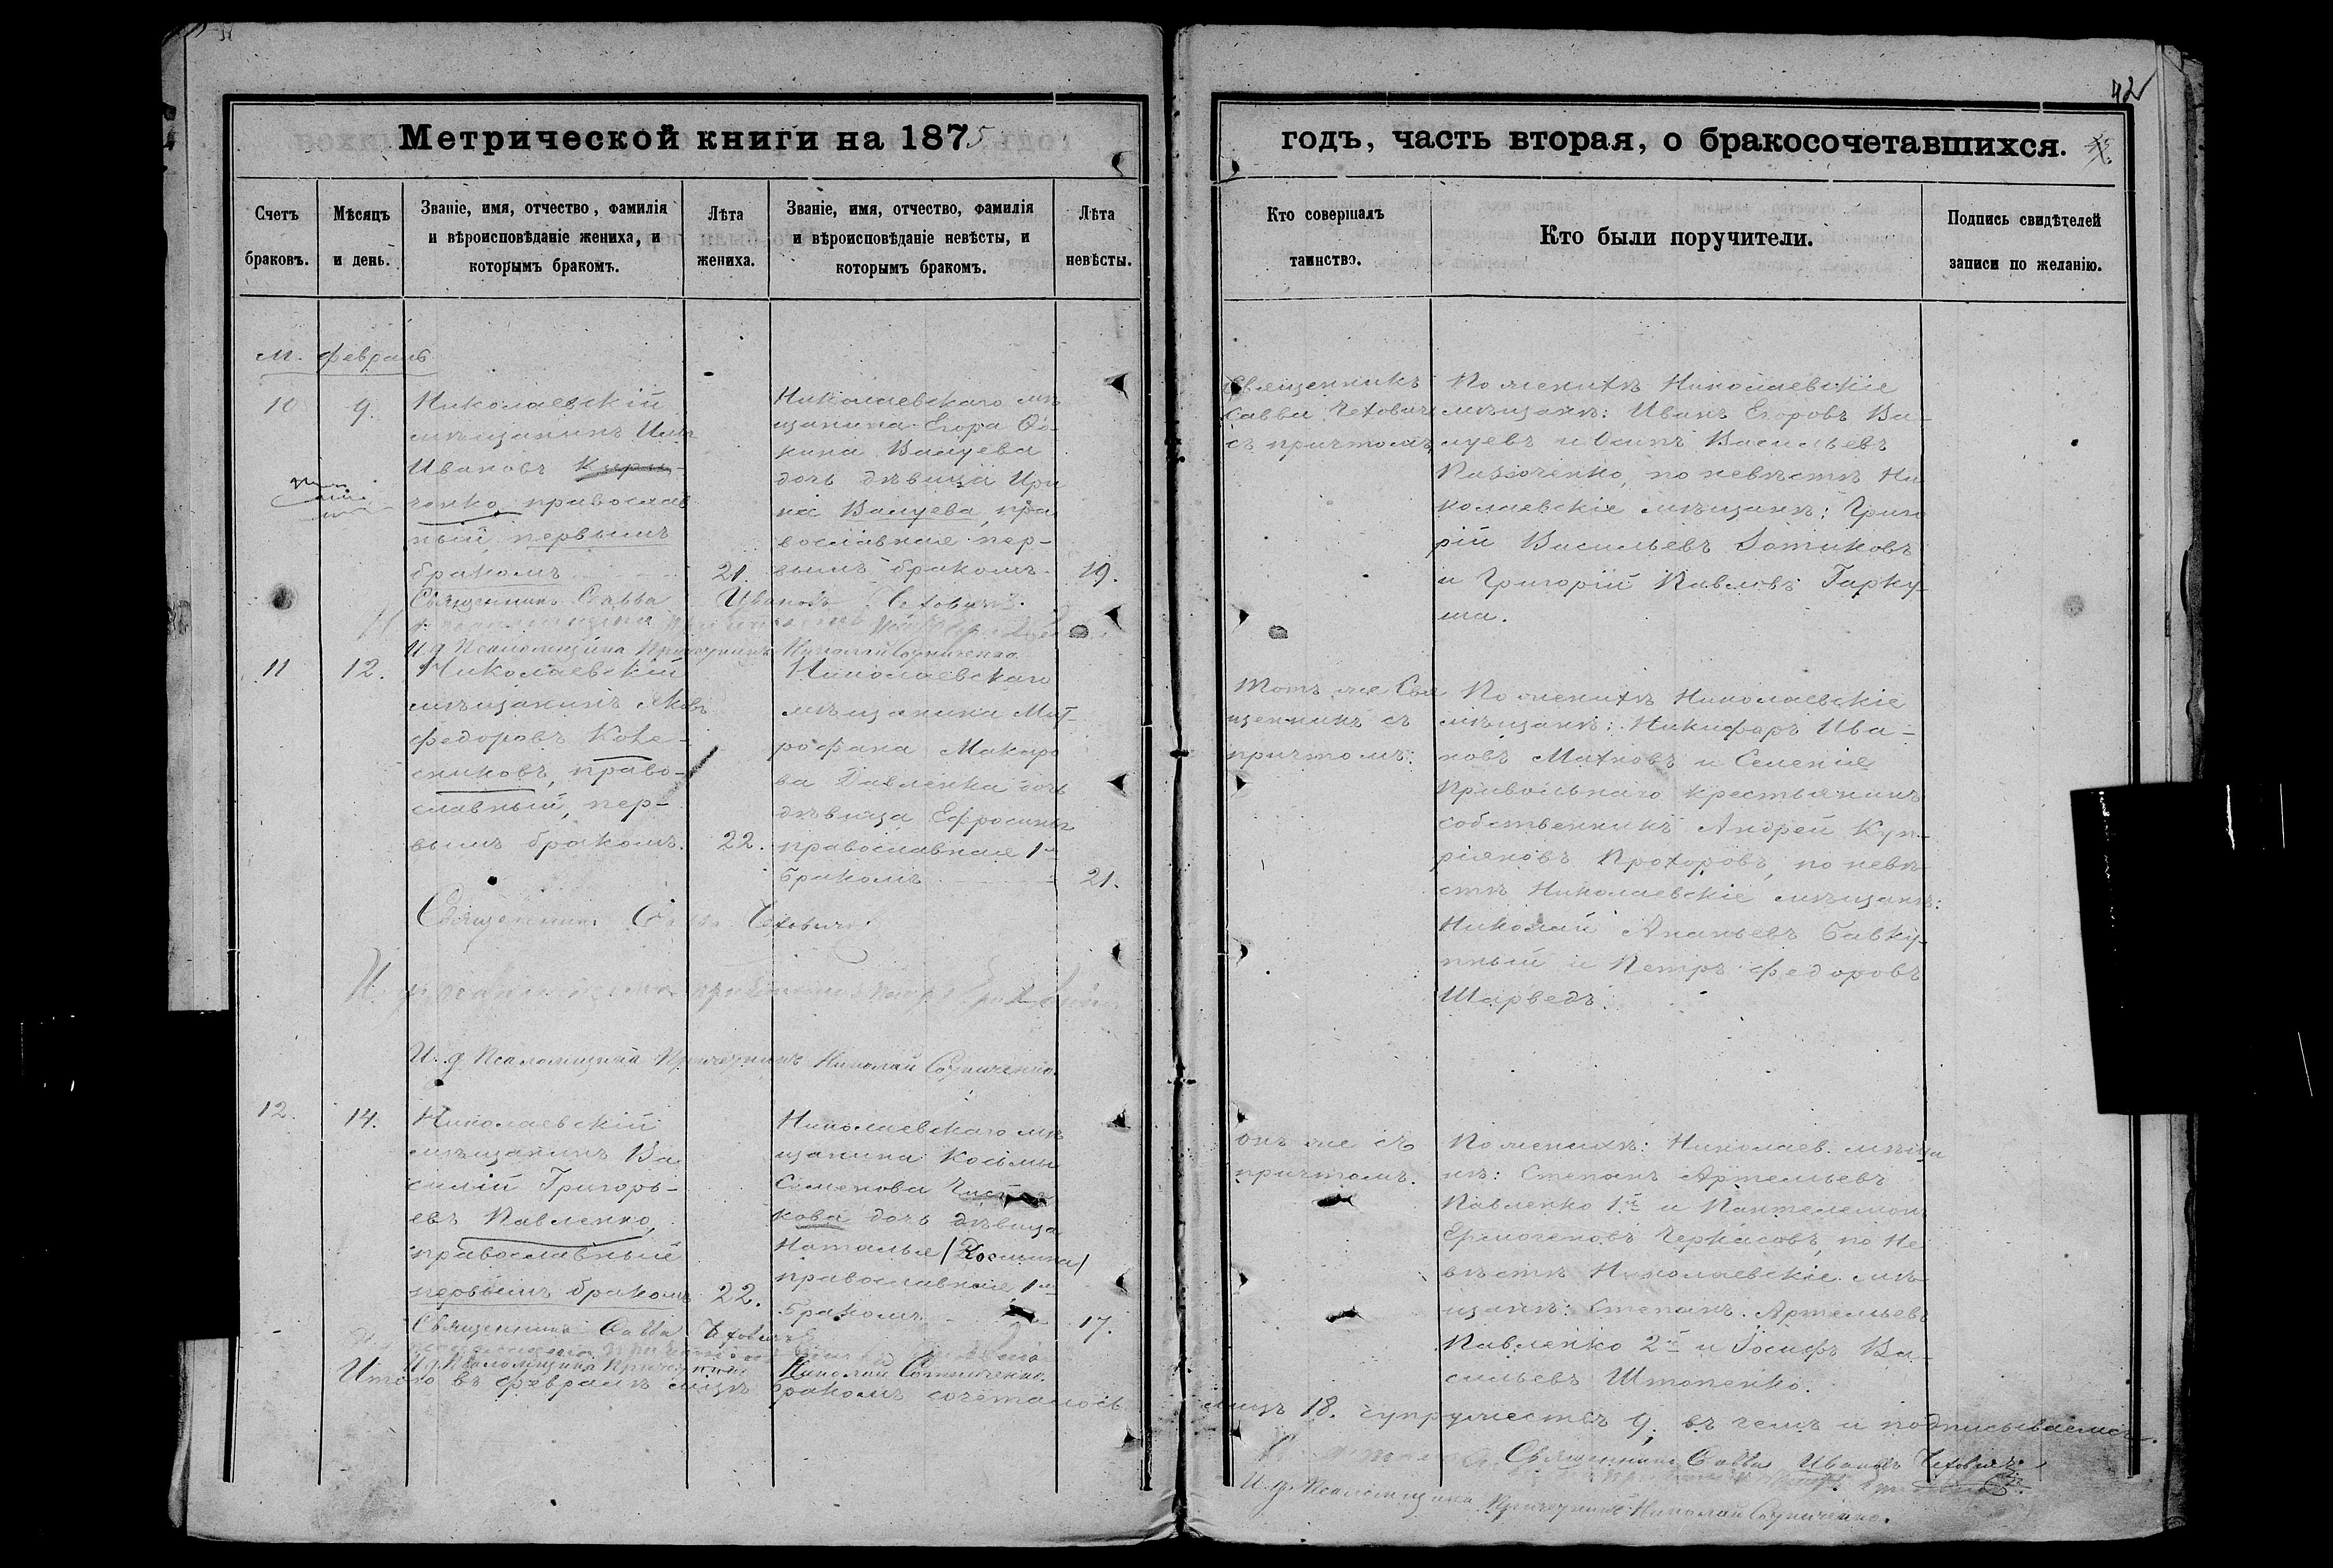 42
Метрической книги на 1875
годъ, часть вторая, о бракосочетавшихся.
Счетъ браковъ.
Мѣсяцъ и день.
Званіе, имя, отчество, фамилія и вѣроисповѣданіе жениха, и которымъ бракомъ.
Лѣта жениха.
Званіе, имя, отчество, фамилія и вѣроисповѣданіе невѣсты, и которымъ бракомъ.
Лѣта невѣсты.
Кто совершалъ таинство.
Кто были поручители.
Подпись свидѣтелей записи по желанію.
м. февраль
10
9.
Николаевскій
мѣщанинъ
Ивановъ
ченко, православ
ный, первымъ
бракомъ
21.
Николаевскаго мѣ
щанина Егора Ѳо-
кина Валуева
дочь дѣвица Ири
на Валуева, пра
вославная пер-
вымъ бракомъ.
19.
Священникъ
Савва Чеховичъ
съ причтомъ
По женихѣ Николаевскіе
мѣщане: Иванъ Егоровъ Ва-
луевъ и Осипъ Васильевъ
по невѣстѣ Ни
колаевскіе мѣщане: Григо
рій Васильевъ Зотиковъ
и Григорій Павловъ Гарку-
ша.
Священникъ Савва Ивановъ Чеховичъ.
И. д. Псаломщика Причетникъ Николай
11
12.
Николаевскій
мѣщанинъ Яковъ
Федоровъ Коже-
право-
славный, пер-
вымъ бракомъ.
22.
Николаевскаго
мѣщанина Мит-
рофана Макаро
ва Павленка дочь
дѣвица Ефросинья
православная 1мъ
бракомъ
21.
Тотъ же Свя
щенникъ съ
причтомъ.
По женихѣ Николаевскіе
мѣщане: Никифоръ Ива-
новъ Махновъ и Селенія
Привольнаго крестьянинъ
собственникъ Андрей Куп-
ріяновъ Прохоровъ, по невѣ-
стѣ Николаевскіе мѣщане:
Николай Ананьевъ Бавку-
нный и Петръ Федоровъ
Шарведъ.
Священникъ Савва Чеховичъ
И. д. Псаломщика Причетникъ Николай
12
14.
Николаевскій
мѣщанинъ Ва
силій Григорь-
евъ Павленко,
православный
первымъ бракомъ
22.
Николаевскаго мѣ
щанина Косьмы
Семенова
кова дочь дѣвица
Наталья (Космина)
православная 1мъ
бракомъ
17.
Онъ же съ
причтомъ.
По женихѣ: Николаев. мѣща
не: Степанъ Артемьевъ
Павленко 1й и Пантелемонъ
Ермогеновъ Черкасовъ, по не
вѣстѣ Николаевскіе мѣ-
щане: Степанъ Артемьевъ
Павленко 2й и Іосифъ Ва-
сильевъ Штопенко.
Священникъ Савва Чеховичъ
И. д. Псаломщика Причетникъ Николай
Итого въ февралѣ мцѣ бракомъ сочеталось
лицъ 18. супружествъ 9, въ чемъ и подписываемся.
Священникъ Савва Ивановъ Чеховичъ.
И. д. Псаломщика Причетникъ Николай